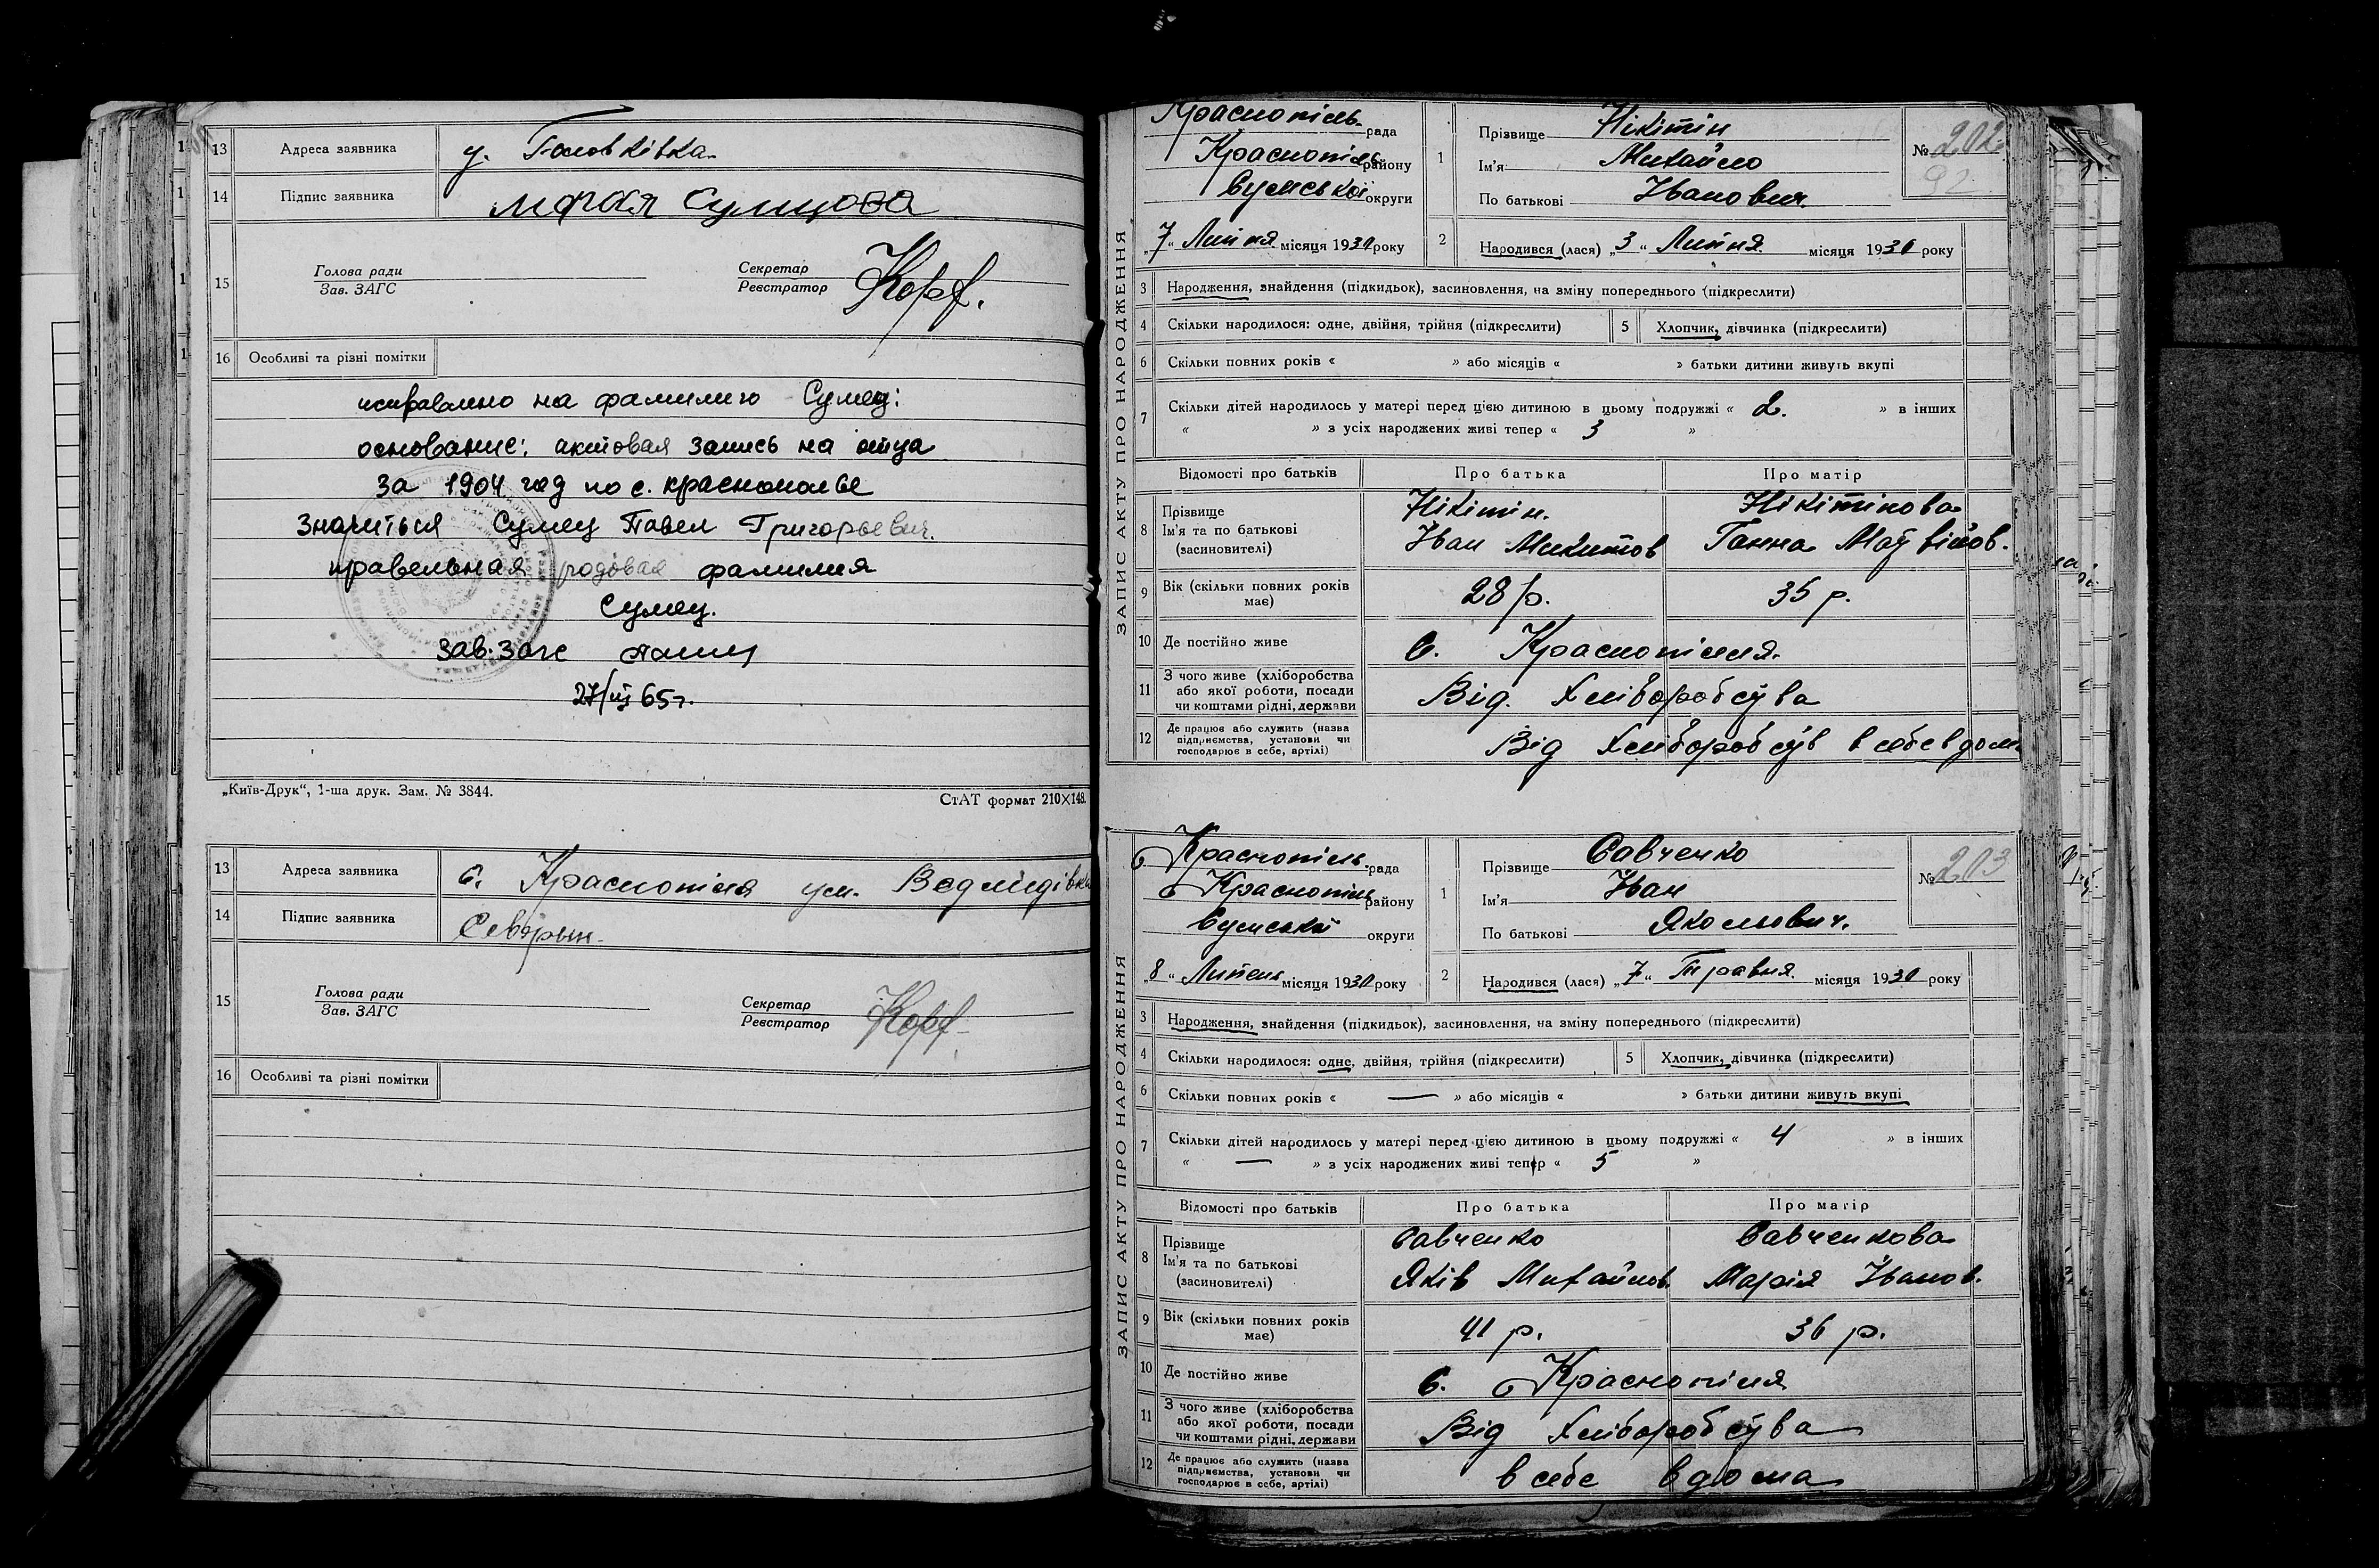 13 Адреса заявника у. Головківка
14 Підпис заявника Сумцова
15 Голова ради
Зав. ЗАГС
Секретар
Реєстратор
16 Особливі та різні помітки
исправлено на фамилию Сумец:
основание: актовая запись на отца
за 1904 год по с. Краснополье
значиться Сумец Павел Григорьевич.
правельная родовая фамилия
Сумец.
Зав. Загс
27/III 65 г.
„Київ-Друк“, 1-ша друк. Зам. № 3844.
СтАТ формат 210×148.
13 Адреса заявника с. Краснопілля ул. Ведмидівка
14 Підпис заявника
15 Голова ради
Зав. ЗАГС
Секретар
Реєстратор
16 Особливі та різні помітки
ЗАПИС АКТУ ПРО НАРОДЖЕННЯ
Краснопіль. рада
Краснопіль району
Сумської округи
„7“ Липня місяця 1930 року
1 Прізвище Нікітін
Ім'я Михайло
По батькові Іванович.
№ 202
92
2 Народився (лася) „3“ Липня місяця 1930 року
3 Народження, знайдення (підкидьок), засиновлення, на зміну попереднього (підкреслити)
4 Скільки народилося: одне, двійня, трійня (підкреслити) 5 Хлопчик, дівчинка (підкреслити)
6 Скільки повних років « » або місяців « » батьки дитини живуть вкупі
7 Скільки дітей народилось у матері перед цією дитиною в цьому подружжі « 2. » в інших
« » з усіх народжених живі тепер « 3 »
Відомості про батьків Про батька Про матір
8 Прізвище
Ім'я та по батькові
(засиновителі)
Нікітін. Нікітінова
Іван Микитов Ганна Матвійов.
9 Вік (скільки повних років
має) 28 р. 35 р.
10 Де постійно живе с. Краснопілля.
11 З чого живе (хліборобства
або якої роботи, посади
чи коштами рідні, держави
Від. Хліборобства
12 Де працює або служить (назва
підприємства, установи чи
господарює в себе, артілі)
Від Хліборобств в себе вдома
ЗАПИС АКТУ ПРО НАРОДЖЕННЯ
Краснопіль. рада
Краснопіль району
Сумської округи
„8“ Липень місяця 1930 року
1 Прізвище Савченко
Ім'я Іван
По батькові Якольович.
№ 203
2 Народився (лася) „7“ Травня місяця 1930 року
3 Народження, знайдення (підкидьок), засиновлення, на зміну попереднього (підкреслити)
4 Скільки народилося: одне, двійня, трійня (підкреслити) 5 Хлопчик, дівчинка (підкреслити)
6 Скільки повних років « — » або місяців « » батьки дитини живуть вкупі
7 Скільки дітей народилось у матері перед цією дитиною в цьому подружжі « 4 » в інших
« — » з усіх народжених живі тепер « 5 »
Відомості про батьків Про батька Про матір
8 Прізвище
Ім'я та по батькові
(засиновителі)
Савченко Савченкова
Яків Михайлов. Марія Іванов.
9 Вік (скільки повних років
має) 41 р. 36 р.
10 Де постійно живе с. Краснопілля
11 З чого живе (хліборобства
або якої роботи, посади
чи коштами рідні, держави
Від Хліборобства
12 Де працює або служить (назва
підприємства, установи чи
господарює в себе, артілі)
в себе вдома